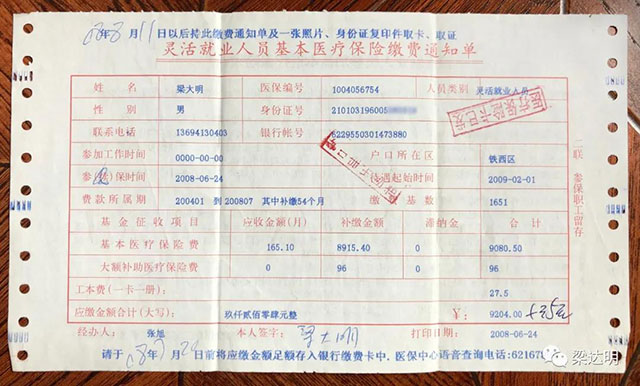 08年8月11日以后持此缴费通知单及一张照片、身份证复印件取卡、取证
灵活就业人员基本医疗保险缴费通知单
姓 名 梁大明 医保编号 1004056754 人员类别 灵活就业人员
性 别 男 身份证号 210103196005
医疗保险卡已发
联系电话 13694130403 银行帐号 6229550301473880
参加工作时间 0000-00-00 户口所在区 铁西区
参 保时间 2008-06-24 遇起始时间 2009-02-01
费款所属期 200401 到 200807 其中补缴54个月 缴 基数 1651
基金征收项目 应收金额(月) 补缴金额 滞纳金 合 计
基本医疗保险费 165.10 8915.40 0 9080.50
大额补助医疗保险费 0 96 0 96
工本费(一卡一册): 27.5
应缴金额合计(大写): 玖仟贰佰零肆元整 ¥: 9204.00
经办人: 张旭 本人签字: 梁大明 打印日期: 2008-06-24
请于 08年7月 日前将应缴金额足额存入银行缴费卡中,医保中心语音查询电话:62167
二联 参保职工留存
梁达明